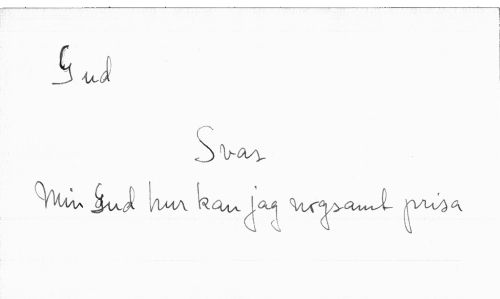 Gud
Svar
Min Gud hur kan jag nogsamt prisa